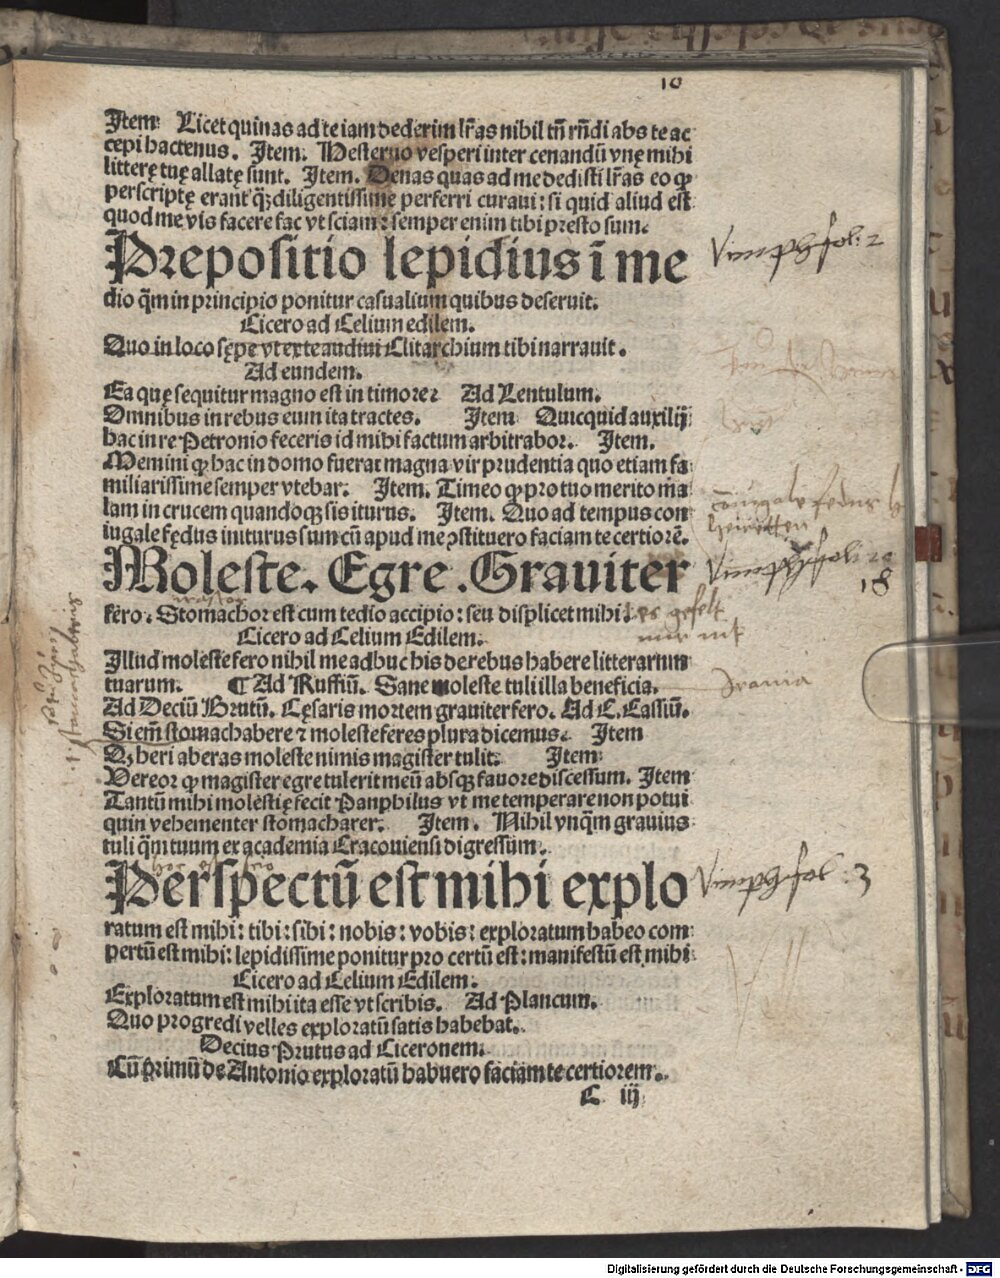 10
Item: Licet quinas ad te iam dederim lr̃as nihil tñ rñdi abs te ac
cepi hactenus. Item. Hesterno vesperi inter cenandū vnę mihi
litterę tuę allatę sunt. Item. Denas quas ad me dedisti lr̃as eo qꝫ
perscriptę erant q̃ꝫ diligentissime perferri curaui: si quid aliud est
quod me vis facere fac vt sciam: semper enim tibi presto sum.
Prepositio lepidius ī me
dio q̃m in principio ponitur casualium quibus deseruit.
Cicero ad Celium edilem.
Quo in loco sępe vt ex te audiui Clitarchium tibi narrauit.
Ad eundem.
Ea quę sequitur magno est in timore: Ad Lentulum.
Omnibus in rebus eum ita tractes. Item Quicquid auxilij
hac in re Petronio feceris id mihi factum arbitrabor. Item.
Memini ꝙ hac in domo fuerat magna vir prudentia quo etiam fa
miliarissime semper vtebar. Item. Timeo ꝙ pro tuo merito ma
lam in crucem quandoqꝫ sis iturus. Item. Quo ad tempus con
iugale fędus initurus sum cū apud me ꝯstituero faciam te certiorē.
Moleste. Egre. Grauiter
fero. Stomachor est cum tedio accipio: seu displicet mihi:
Cicero ad Celium Edilem.
Illud moleste fero nihil me adhuc his de rebus habere litterarum
tuarum. ¶ Ad Ruffiū. Sane moleste tuli illa beneficia.
Ad Deciū Brutū. Cęsaris mortem grauiter fero. Ad C. Cassiū.
Si em̄ stomachabere ⁊ moleste feres plura dicemus. Item
Qꝫ heri aberas moleste nimis magister tulit. Item:
Vereor ꝙ magister egre tulerit meū absqꝫ fauore discessum. Item
Tantū mihi molestię fecit Panphilus vt me temperare non potui
quin vehementer stomacharer. Item. Nihil vnq̃m grauius
tuli q̃m tuum ex academia Cracouiensi digressum.
Perspectū est mihi explo
ratum est mihi: tibi: sibi: nobis: vobis: exploratum habeo com
pertū est mihi: lepidissime ponitur pro certū est: manifestū est mihi
Cicero ad Celium Edilem:
Exploratum est mihi ita esse vt scribis. Ad Plancum.
Quo progredi velles exploratū satis habebat.
Decius Prutus ad Ciceronem.
Cū primū de Antonio exploratū habuero faciam te certiorem.
C iij
Vimph fol: 2
18
Vimph fol: 3
Digitalisierung gefördert durch die Deutsche Forschungsgemeinschaft - DFG